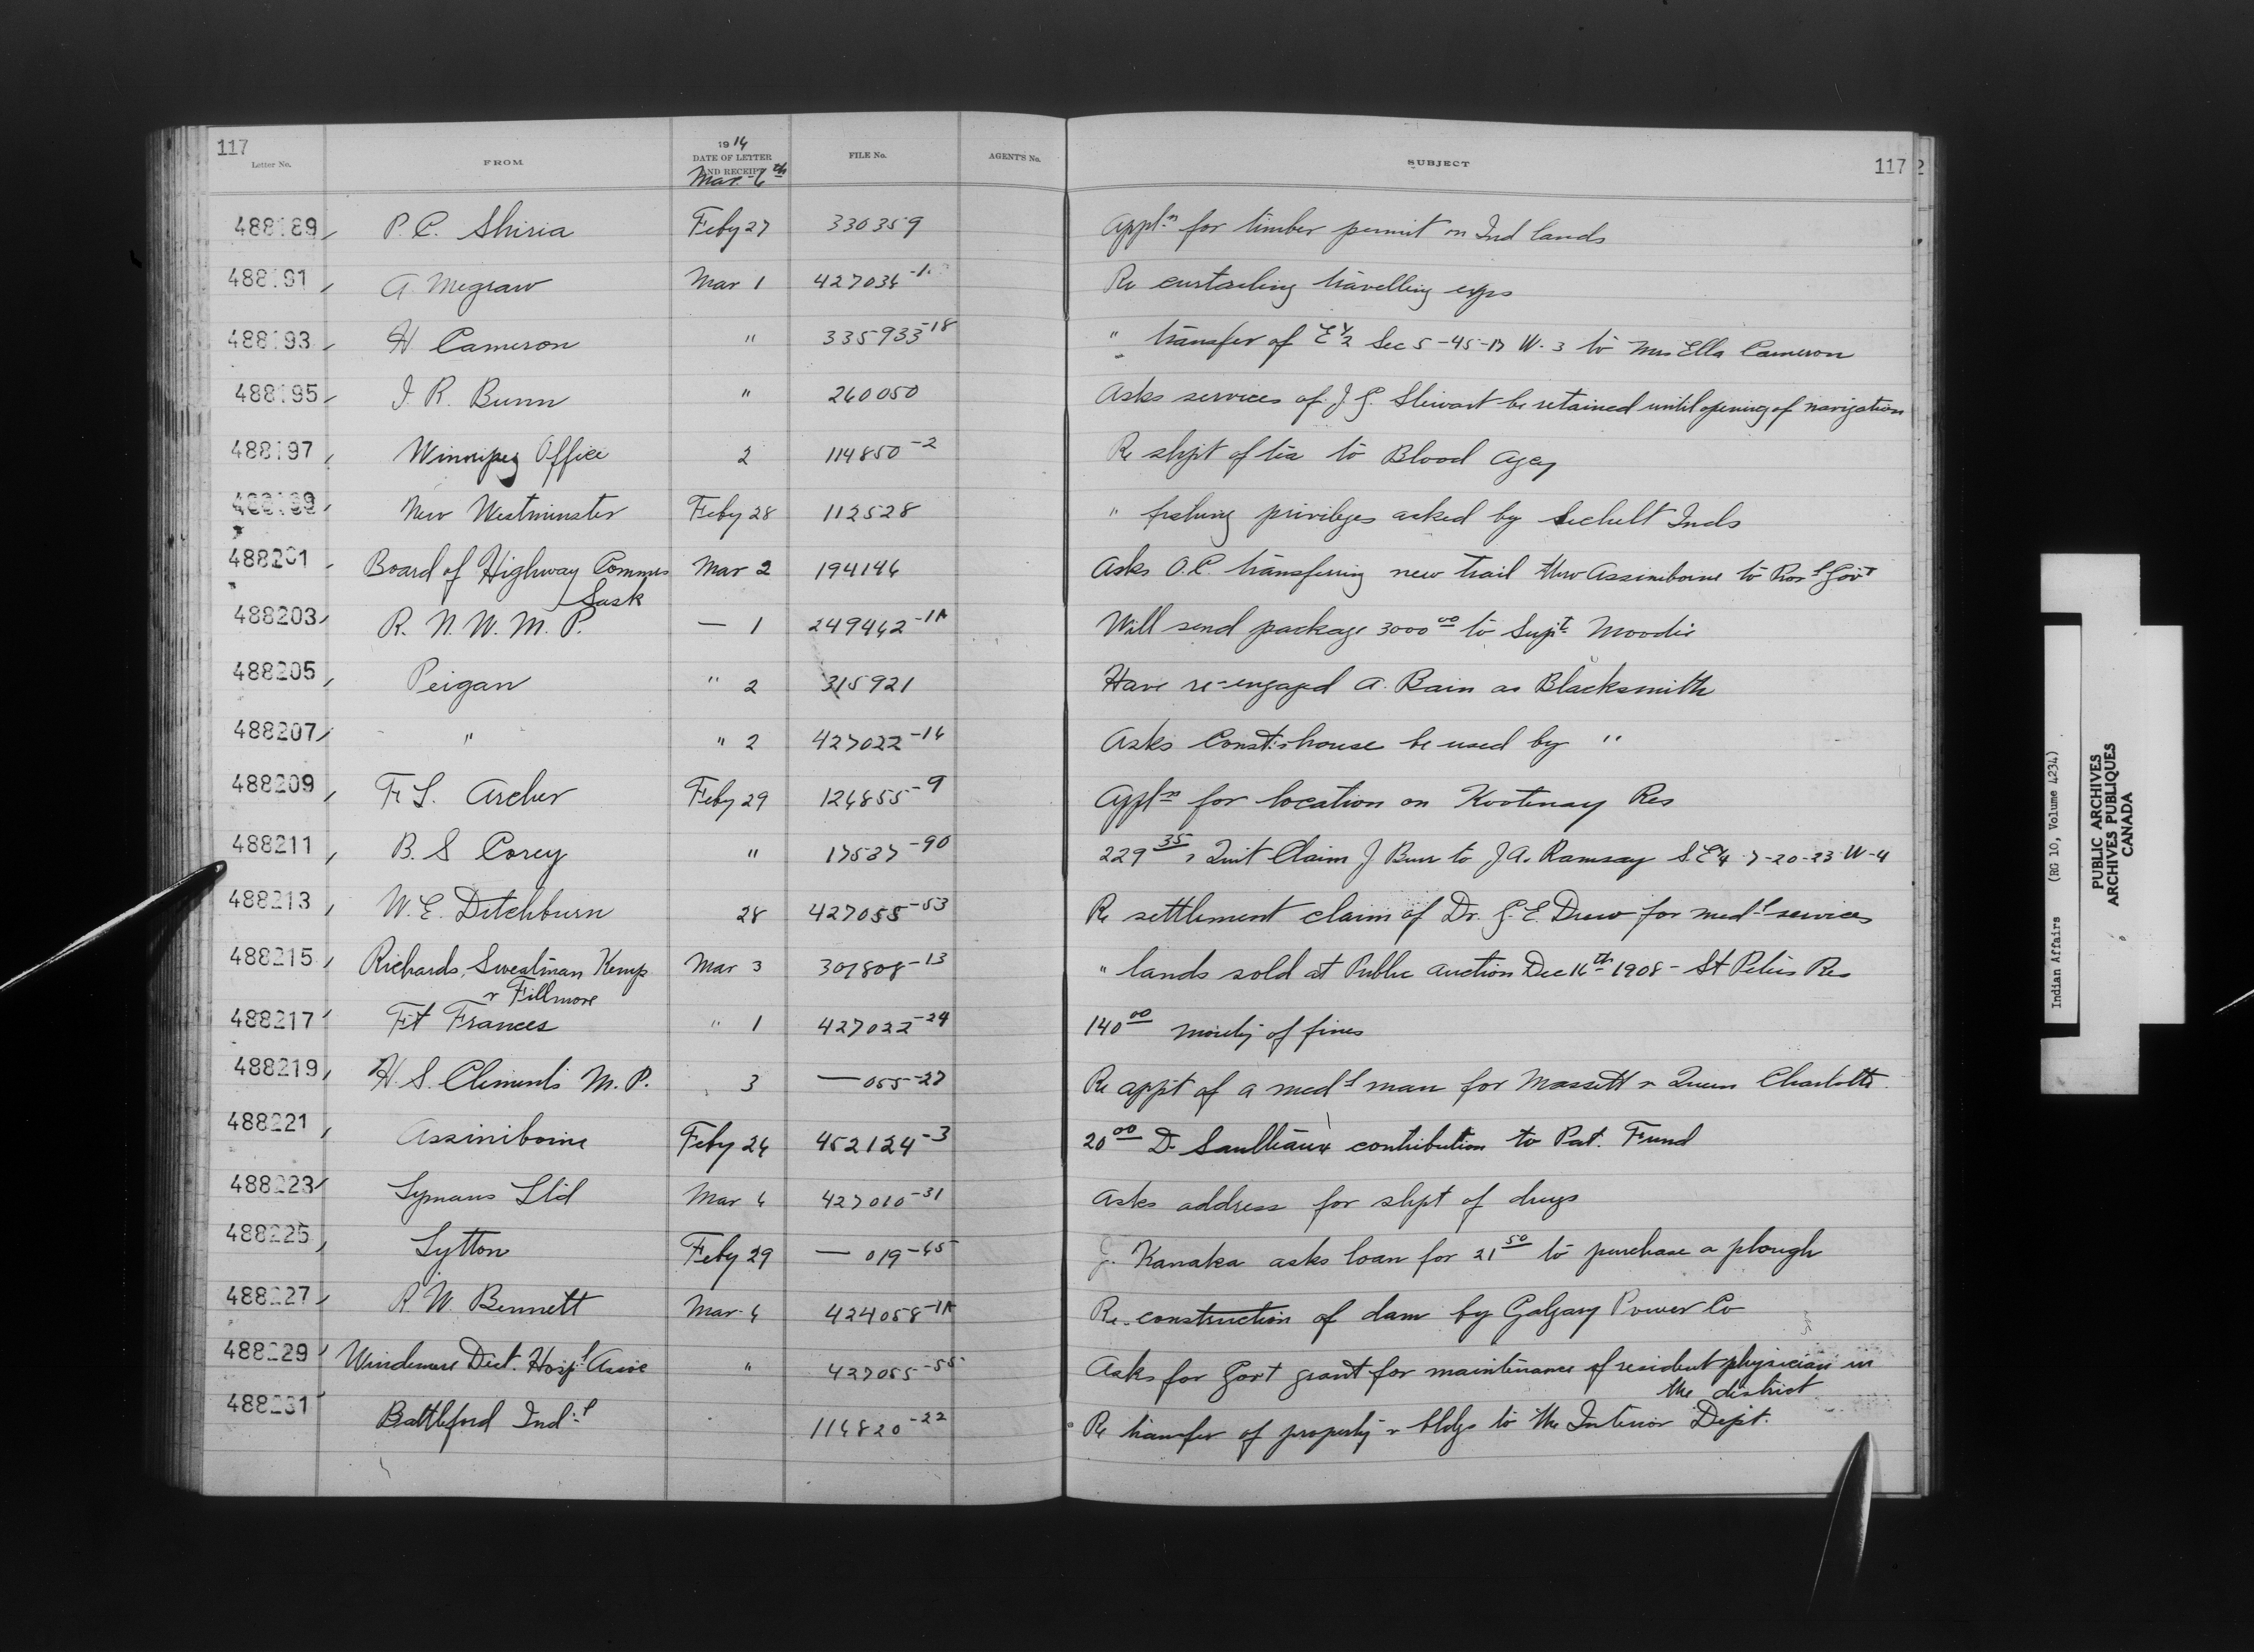 117
Letter No. FROM 1916 DATE OF LETTER AND RECEIPT FILE No. AGENT'S No. SUBJECT 117
Mar 6th
488189 P. C. Shiria Feby 27 330359 Appln for timber permit on Ind lands
488191 A. Megraw Mar 1 427036-1 Re curtailing travelling exps
488193 H Cameron " 335933-18 " transfer of E 1/2 Sec 5-45-17 W. 3 to Mrs Ella Cameron
488195 J. R. Bunn " 260050 Asks services of J. G. Stewart be retained until opening of navigation
488197 Winnipeg Office 2 114850-2 Re shpt of tea to Blood Agcy
488199 New Westminster Feby 28 112528 " fishing privileges asked by Sechelt Inds
488201 Board of Highway Commrs Mar 2 194146 Asks O.C. transferring new trail thro Assiniboine to Provl Govt
Sask
488203 R. N. W. M. P. — 1 249462-1A Will send package 3000 00 to Supt Moodie
488205 Peigan " 2 315921 Have re-engaged A. Bain as Blacksmith
488207 " " 2 427022-16 Asks Const's house be used by "
488209 F. S. Archer Feby 29 126855-9 Appln for location on Kootenay Res
488211 B. S Corey " 17537-90 229 35 & Quit Claim J Burr to J. A. Ramsay S.E 1/4 7-20-23 W-4
488213 W. E. Ditchburn 28 427055-53 Re settlement claim of Dr. G. E. Drew for medl services
488215 Richards, Sweatman Kemp Mar 3 301808-13 " lands sold at Public Auction Dec 16th 1908 - St Peters Res
& Fillmore
488217 Ft Frances " 1 427022-24 140 00 moiety of fines
488219 H. S. Clements M. P. 3 — 055-27 Re appt of a medl man for Massett & Queen Charlotte
488221 Assiniboine Feby 26 452124-3 20 00 D. Saulteaux contribution to Pat. Fund
488223 Lymans Ltd Mar 6 427010-31 Asks address for shpt of drugs
488225 Lytton Feby 29 — 019-65 J. Kanaka asks loan for 21 50 to purchase a plough
488227 R. W. Bennett Mar 6 424058-1A Re construction of dam by Calgary Power Co
488229 Windemere Dist. Hospl Assoc " 427055-55 Asks for Govt grant for maintenance of resident physician in
the district
488231 Battleford Indl 116820-22 Re transfer of property & bldgs to the Interior Dept.
Indian Affairs (RG 10, Volume 4234)
PUBLIC ARCHIVES
ARCHIVES PUBLIQUES
CANADA